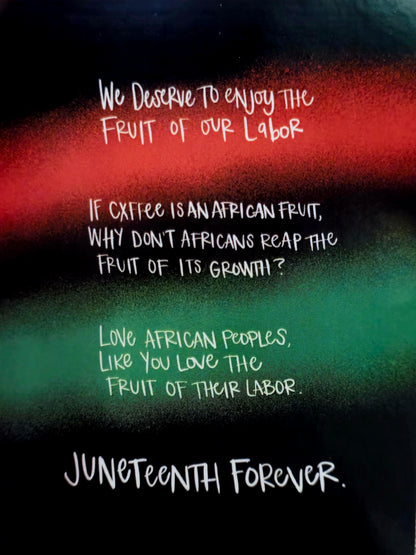 We Deserve to enjoy the
Fruit of our Labor
If Cxffee is an African Fruit,
Why don't Africans reap the
Fruit of its growth?
Love African Peoples,
Like you love the
Fruit of their labor.
Juneteenth Forever.